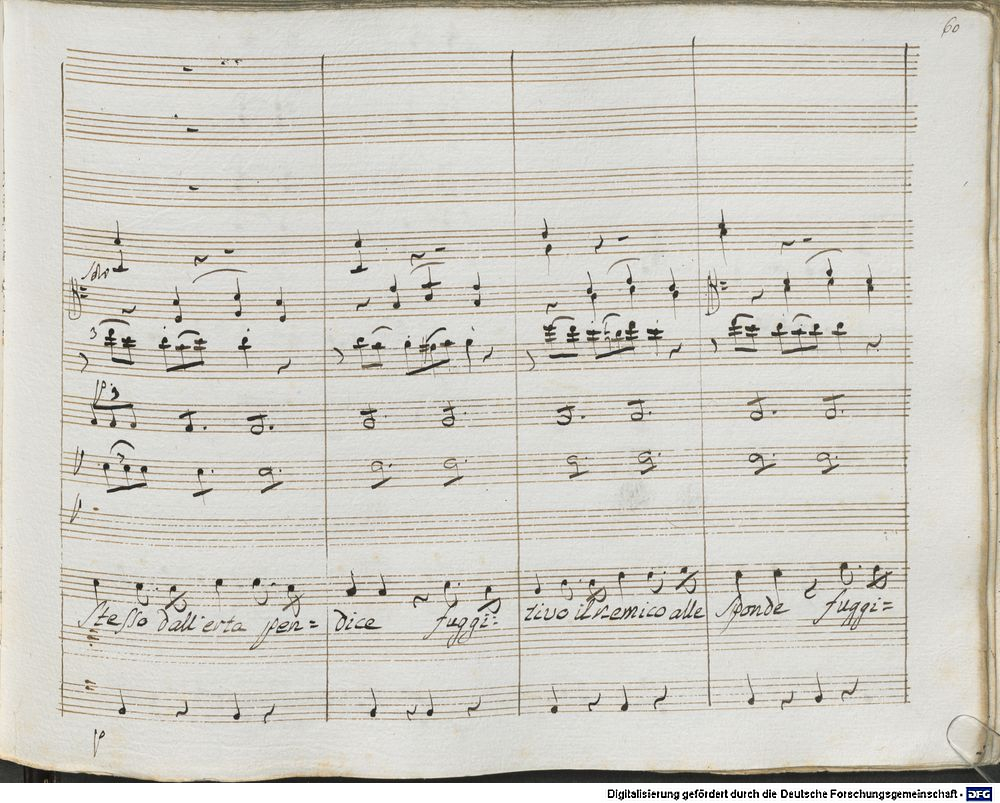 60
Solo
3
p. 3
3
stesso dall'erta pen= dice fuggi= tivo il nemico alle sponde fuggi=
p
Digitalisierung gefördert durch die Deutsche Forschungsgemeinschaft - DFG